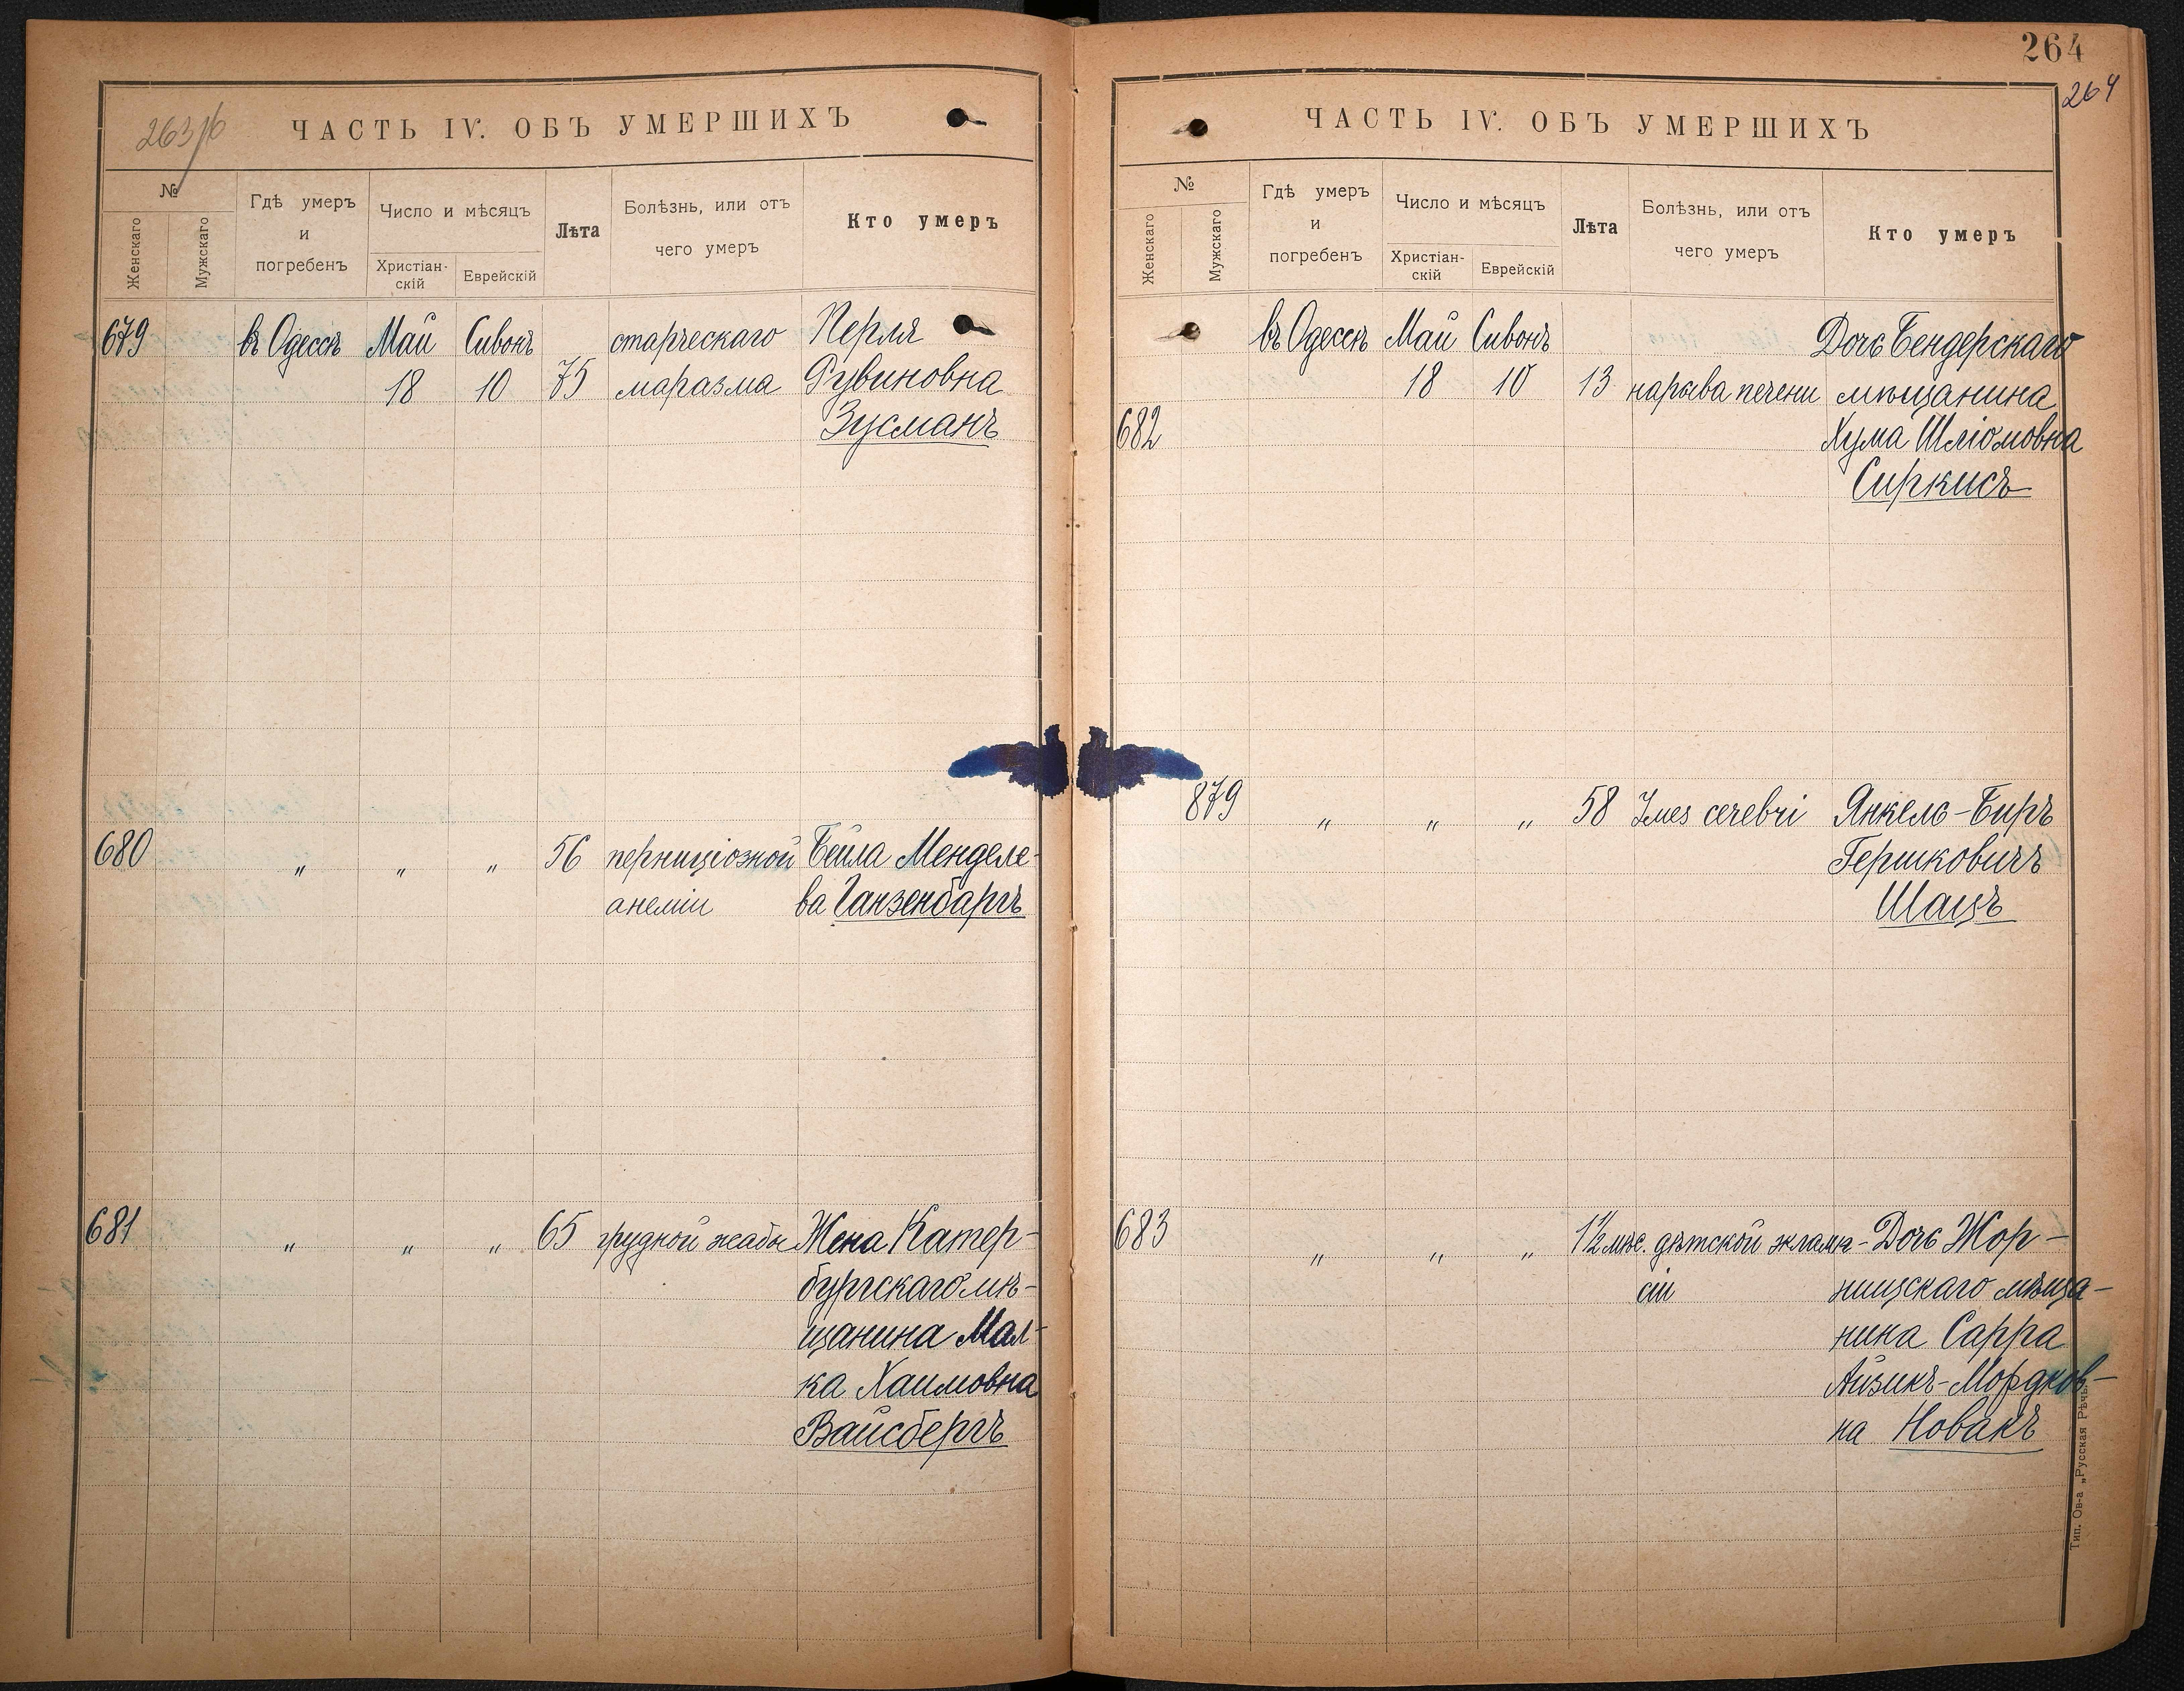 263/б
ЧАСТЬ IV. ОБЪ УМЕРШИХЪ
№
Женскаго
Мужскаго
Гдѣ умеръ
и
погребенъ
Число и мѣсяцъ
Христіан-
скій
Еврейскій
Лѣта
Болѣзнь, или отъ
чего умеръ
Кто умеръ
679 въ Одессѣ Май Сивонъ старческаго Перля
18 10 75 маразма Рувиновна
Зусманъ
680 " " " 56 перниціозной Бейла Менделе-
анеміи ва Ганзенбаргъ
681 " " " 65 грудной жабы Жена Катер-
бургскаго мѣ-
щанина Мал-
ка Хаимовна
Вайсбергъ
264
264
ЧАСТЬ IV. ОБЪ УМЕРШИХЪ
№
Женскаго
Мужскаго
Гдѣ умеръ
и
погребенъ
Число и мѣсяцъ
Христіан-
скій
Еврейскій
Лѣта
Болѣзнь, или отъ
чего умеръ
Кто умеръ
въ Одессѣ Май Сивонъ Дочь Бендерскаго
18 10 13 нарыва печени мѣщанина
682 Хума Шліомовна
Сиркисъ
879 " " " 58 cerebri Янкель-Биръ
Гершковичъ
Шацъ
683 " " " 1½ мѣс. дѣтской экламп- Дочь Жор-
сіи нищскаго мѣща-
нина Сарра
Айзикъ-Мордков-
на Новакъ
Тип. Ов-а „Русская Рѣчь"